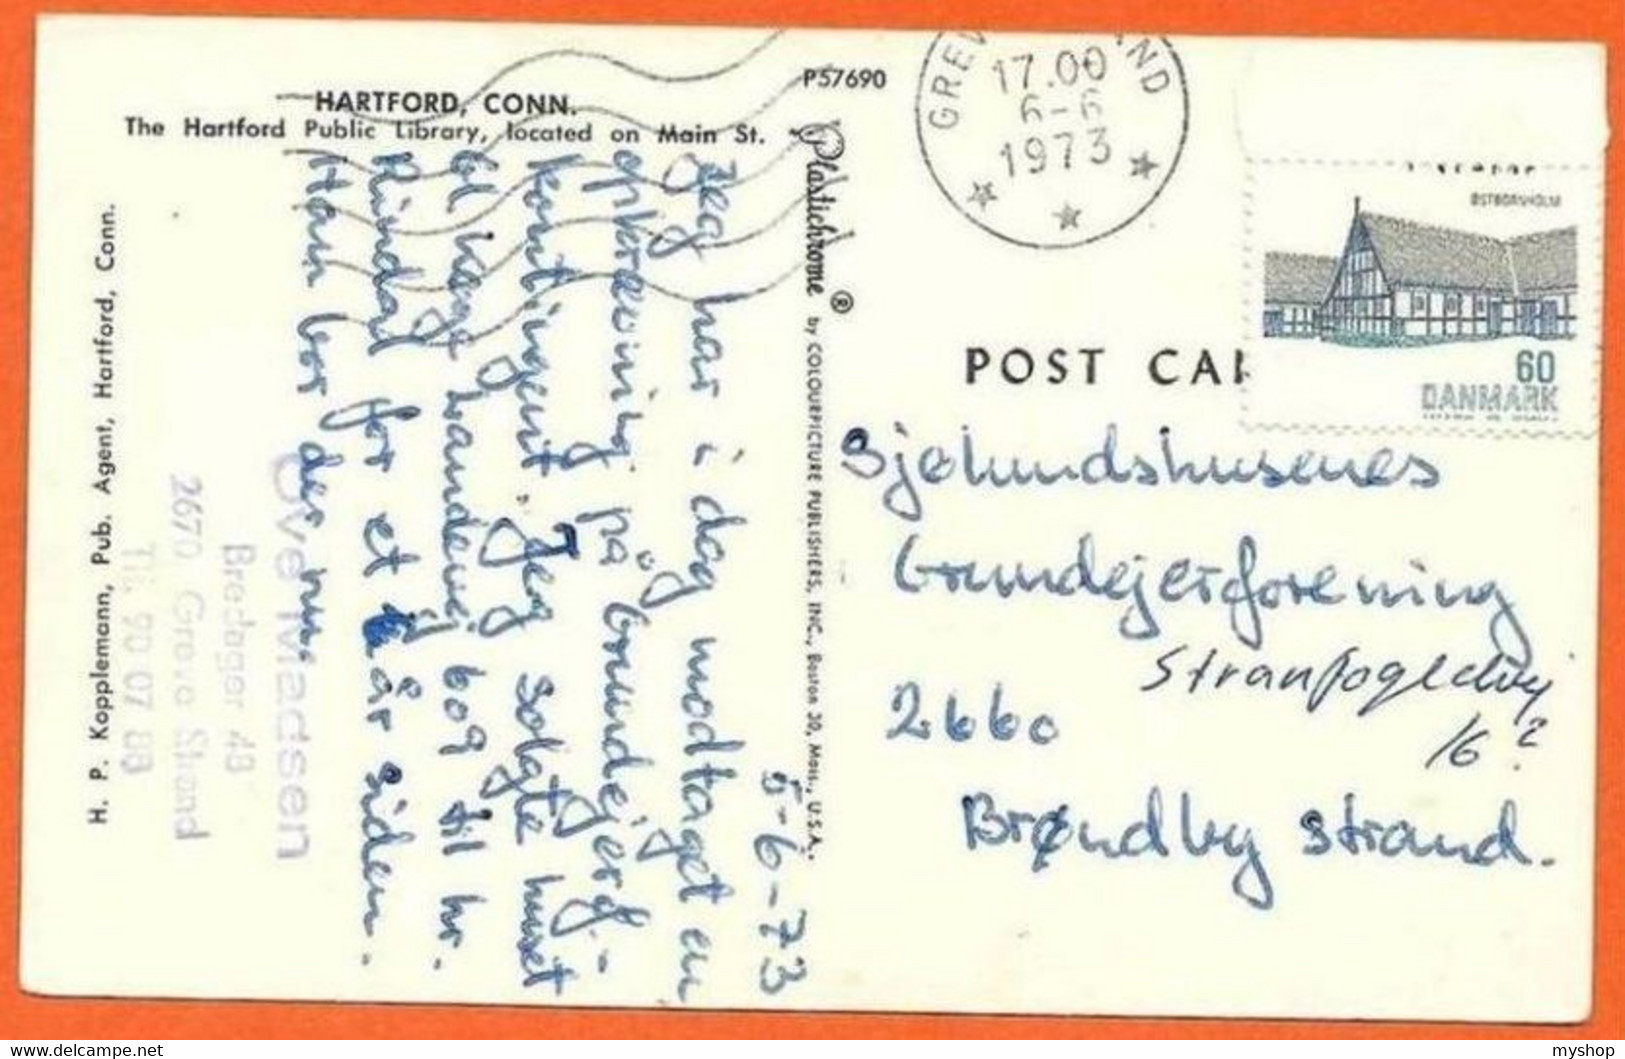 HARTFORD, CONN.
The Hartford Public Library, located on Main St.
P57690
H. P. Kopplemann, Pub. Agent, Hartford, Conn.
Plastichrome ® by COLOURPICTURE PUBLISHERS, INC., Boston 30, Mass., U.S.A.
5-6-73
Jeg har i dag modtaget en
opkrævning på "Grundejerf.-
kontingent". Jeg solgte huset
Køge Landevej 609 til hr.
Rindal for et år siden.
Han bor der nu.
Ove Madsen
Bredager 48
2670 Greve Strand
Tlf. 90 07 88
GREV ND
17.00
6-6
1973
ØSTBORNHOLM
60
DANMARK
POST CAR
Sjølundshusenes
Grundejerforening
16?
2660
Brøndby Strand.
myshop